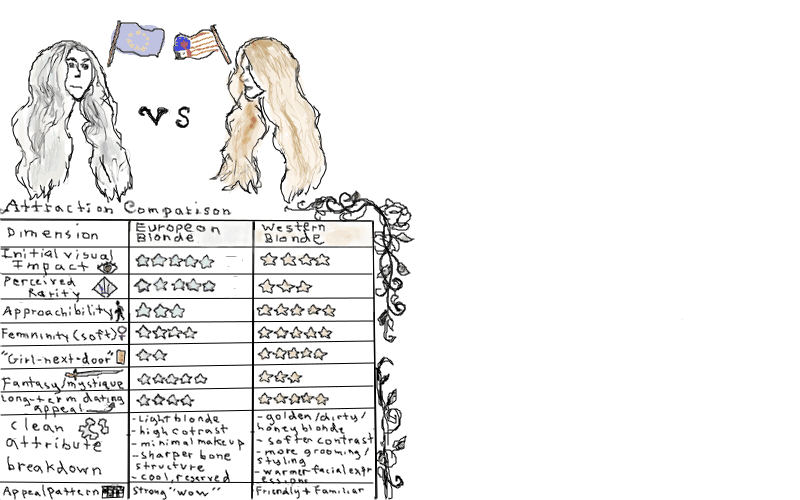 VS
Attraction Comparison
Dimension
European
Blonde
Western
Blonde
Initial visual
Impact
Perceived
Rarity
Approachibility
Femninity (soft)
"Girl-next-door"
Fantasy/mystique
Long-term dating
appeal
clean
attribute
breakdown
-Light blonde
-high cotrast
-minimal makeup
-sharper bone
structure
-cool, reserved
-golden/dirty/
honey blonde
-softer contrast
-more grooming/
styling
-warmer facial expr
essions
Appeal Pattern
Strong "wow"
Friendly + Familiar